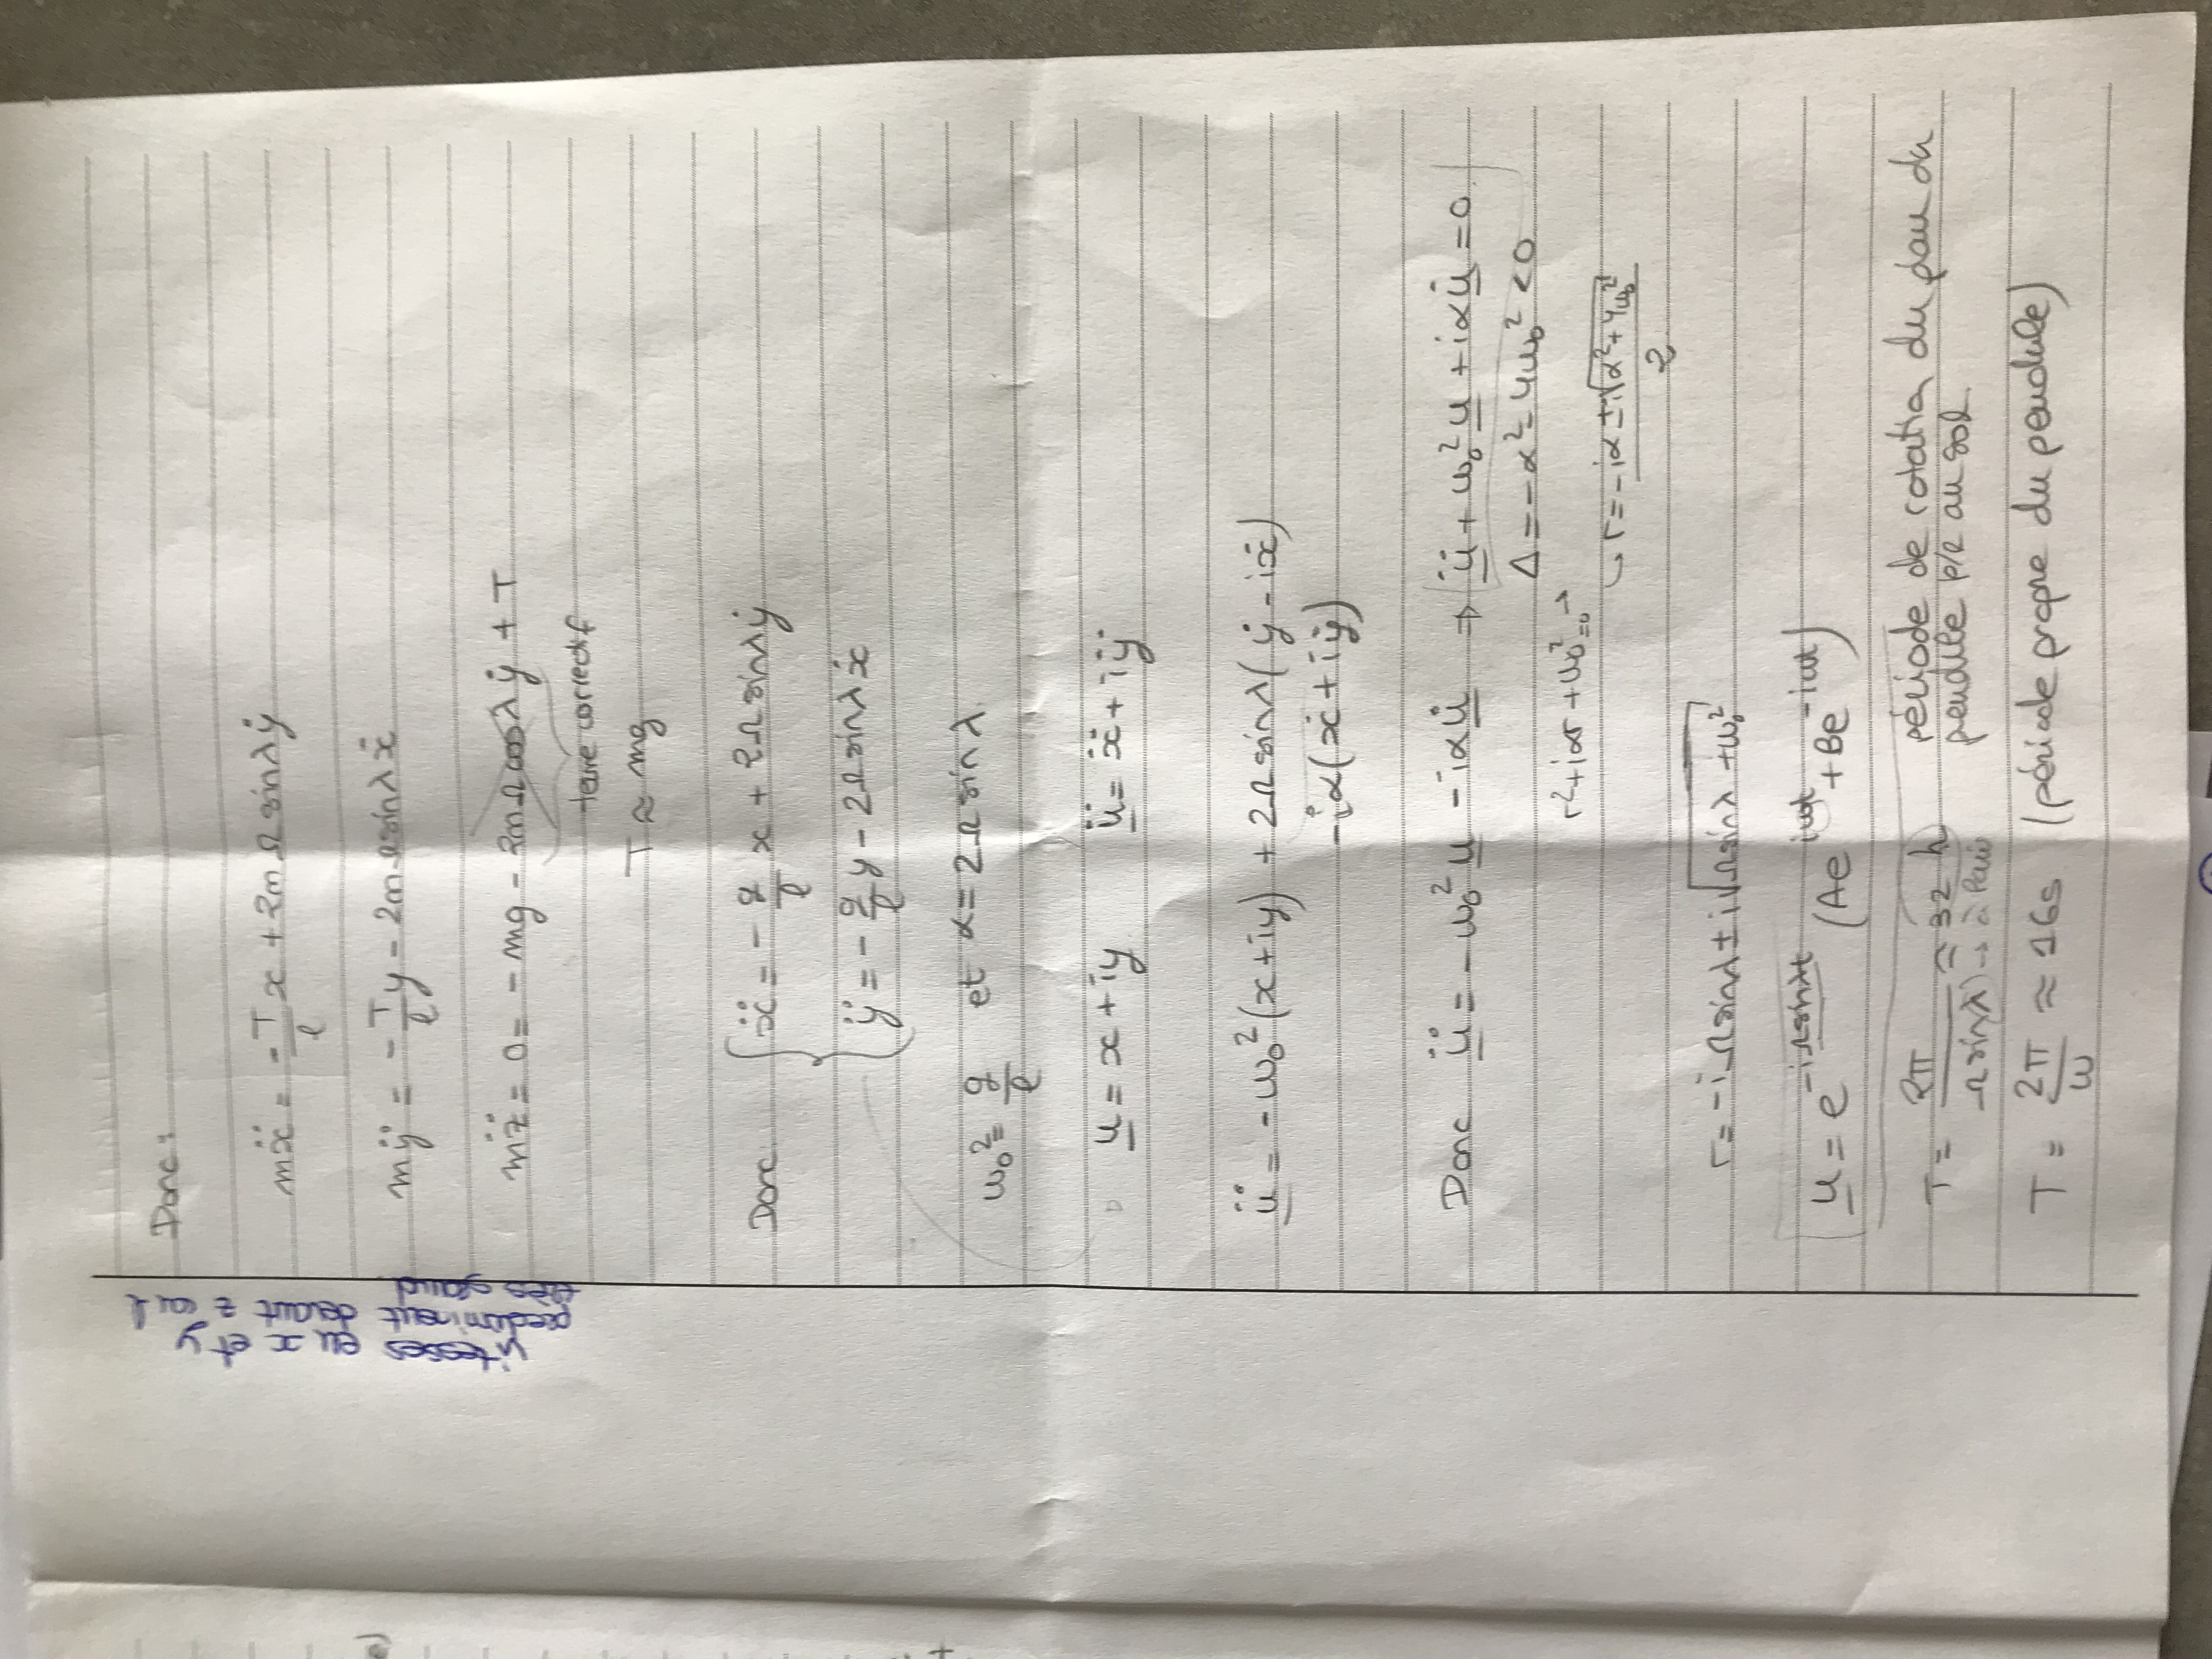 vitesses en x et y
prédominent devant z car l
très grand
Donc :
mẍ = -T/l x + 2mΩ sinλ ẏ
mÿ = -T/l y - 2mΩ sinλ ẋ
mz̈ = 0 = -mg - 2mΩ cosλ ẏ + T
terme correctif
T ≈ mg
Donc { ẍ = -g/l x + 2Ω sinλ ẏ
ÿ = -g/l y - 2Ω sinλ ẋ
ω₀² = g/l et α = 2Ω sin λ
u = x + iy ü = ẍ + iÿ
ü = -ω₀²(x+iy) + 2Ω sinλ(ẏ - iẋ)
-iα(ẋ + iẏ)
Donc ü = -ω₀² u - iα u̇ ⇒ ü + ω₀² u + iα u̇ = 0
Δ = -α² - 4ω₀² < 0
r² + iαr + ω₀² = 0 →
↳ r = (-iα ± i√(α² + 4ω₀²))/2
r = -iΩ sinλ ± i√(Ω sinλ + ω₀²)
u = e^(-iΩ sinλt) (Ae^(iωt) + Be^(-iωt))
T = 2π/(Ω sin(λ)) ≈ 32 h période de rotation du plan du
→ à Paris pendule p/r au sol.
T = 2π/ω ≈ 16s (période propre du pendule)